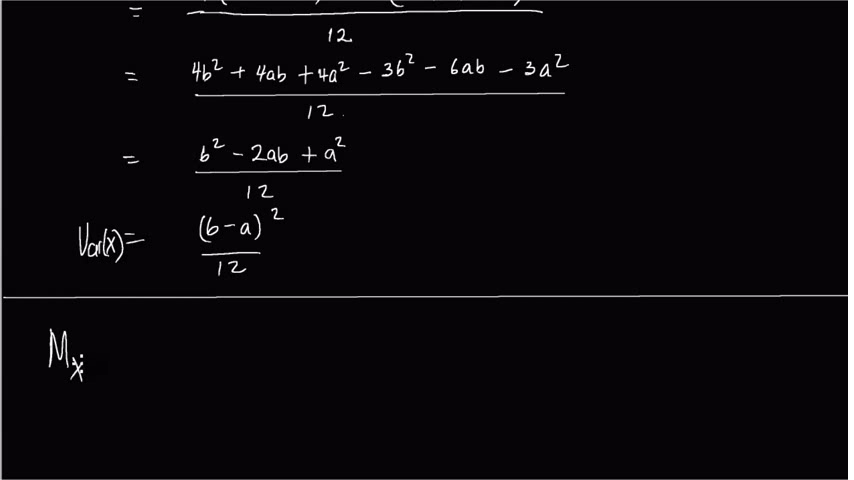 =
12
= 4b² + 4ab + 4a² - 3b² - 6ab - 3a²
12
= b² - 2ab + a²
12
Var(x) = (b-a)²
12
Mx